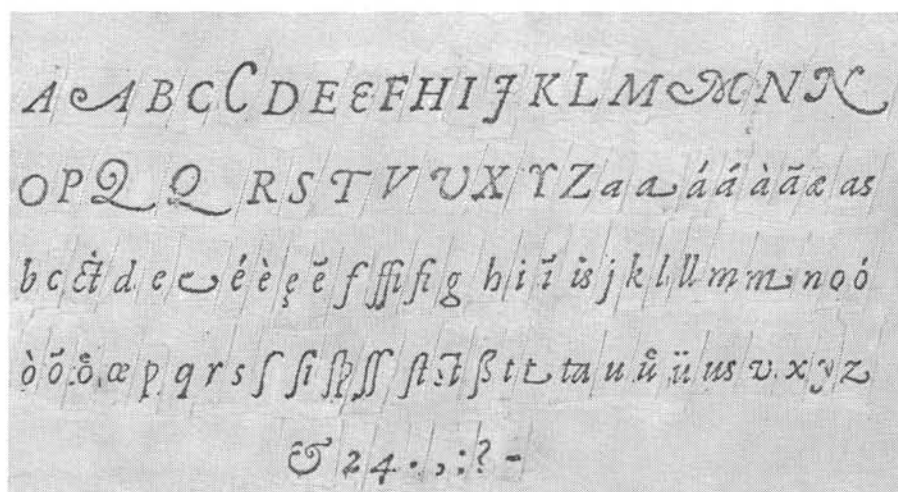 A A B C C D E E F H I J K L M M N N
O P Q Q R S T V U X Y Z a a á á à ã æ as
b c ct d e e é è ę ẽ f ffi fi g h i ĩ is j k l ll m m n o ó
ò õ o̊ œ p q r s ſ ſi ſp ſſ ſt ſt ß t t ta u ů ü us v x y z
& 2 4 . , : ? -